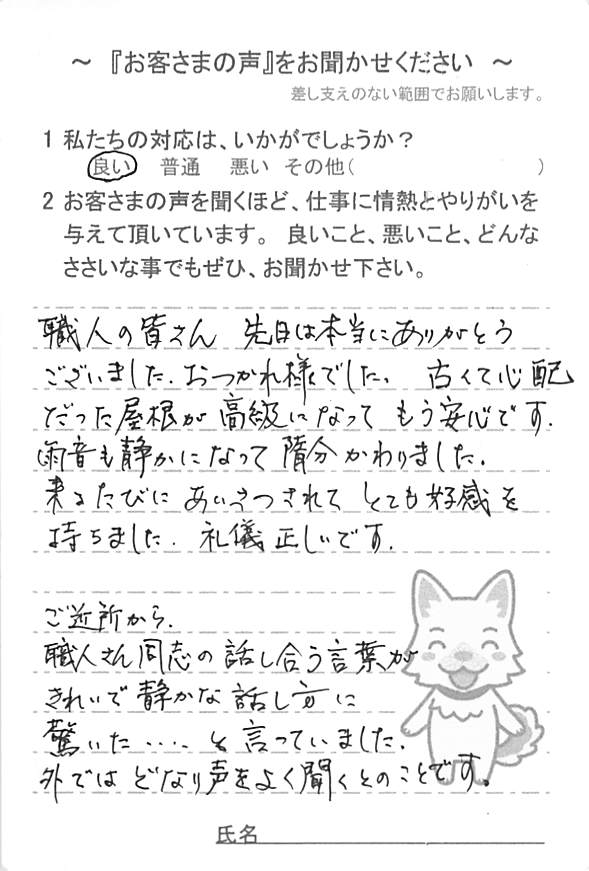 ～ 『お客さまの声』をお聞かせください ～
差し支えのない範囲でお願いします。
1 私たちの対応は、いかがでしょうか？
良い 普通 悪い その他( )
2 お客さまの声を聞くほど、仕事に情熱とやりがいを
与えて頂いています。 良いこと、悪いこと、どんな
ささいな事でもぜひ、お聞かせ下さい。
職人の皆さん 先日は本当にありがとう
ございました。おつかれ様でした。 古くて心配
だった屋根が 高級になって もう安心です.
雨音も静かになって 随分かわりました.
来るたびに あいさつされて とても好感を
持ちました. 礼儀正しいです.
ご近所から.
職人さん同志の話し合う言葉が
きれいで静かな話し方に
驚いた・・・・と言っていました.
外では どなり声をよく聞くとのことです。
氏名